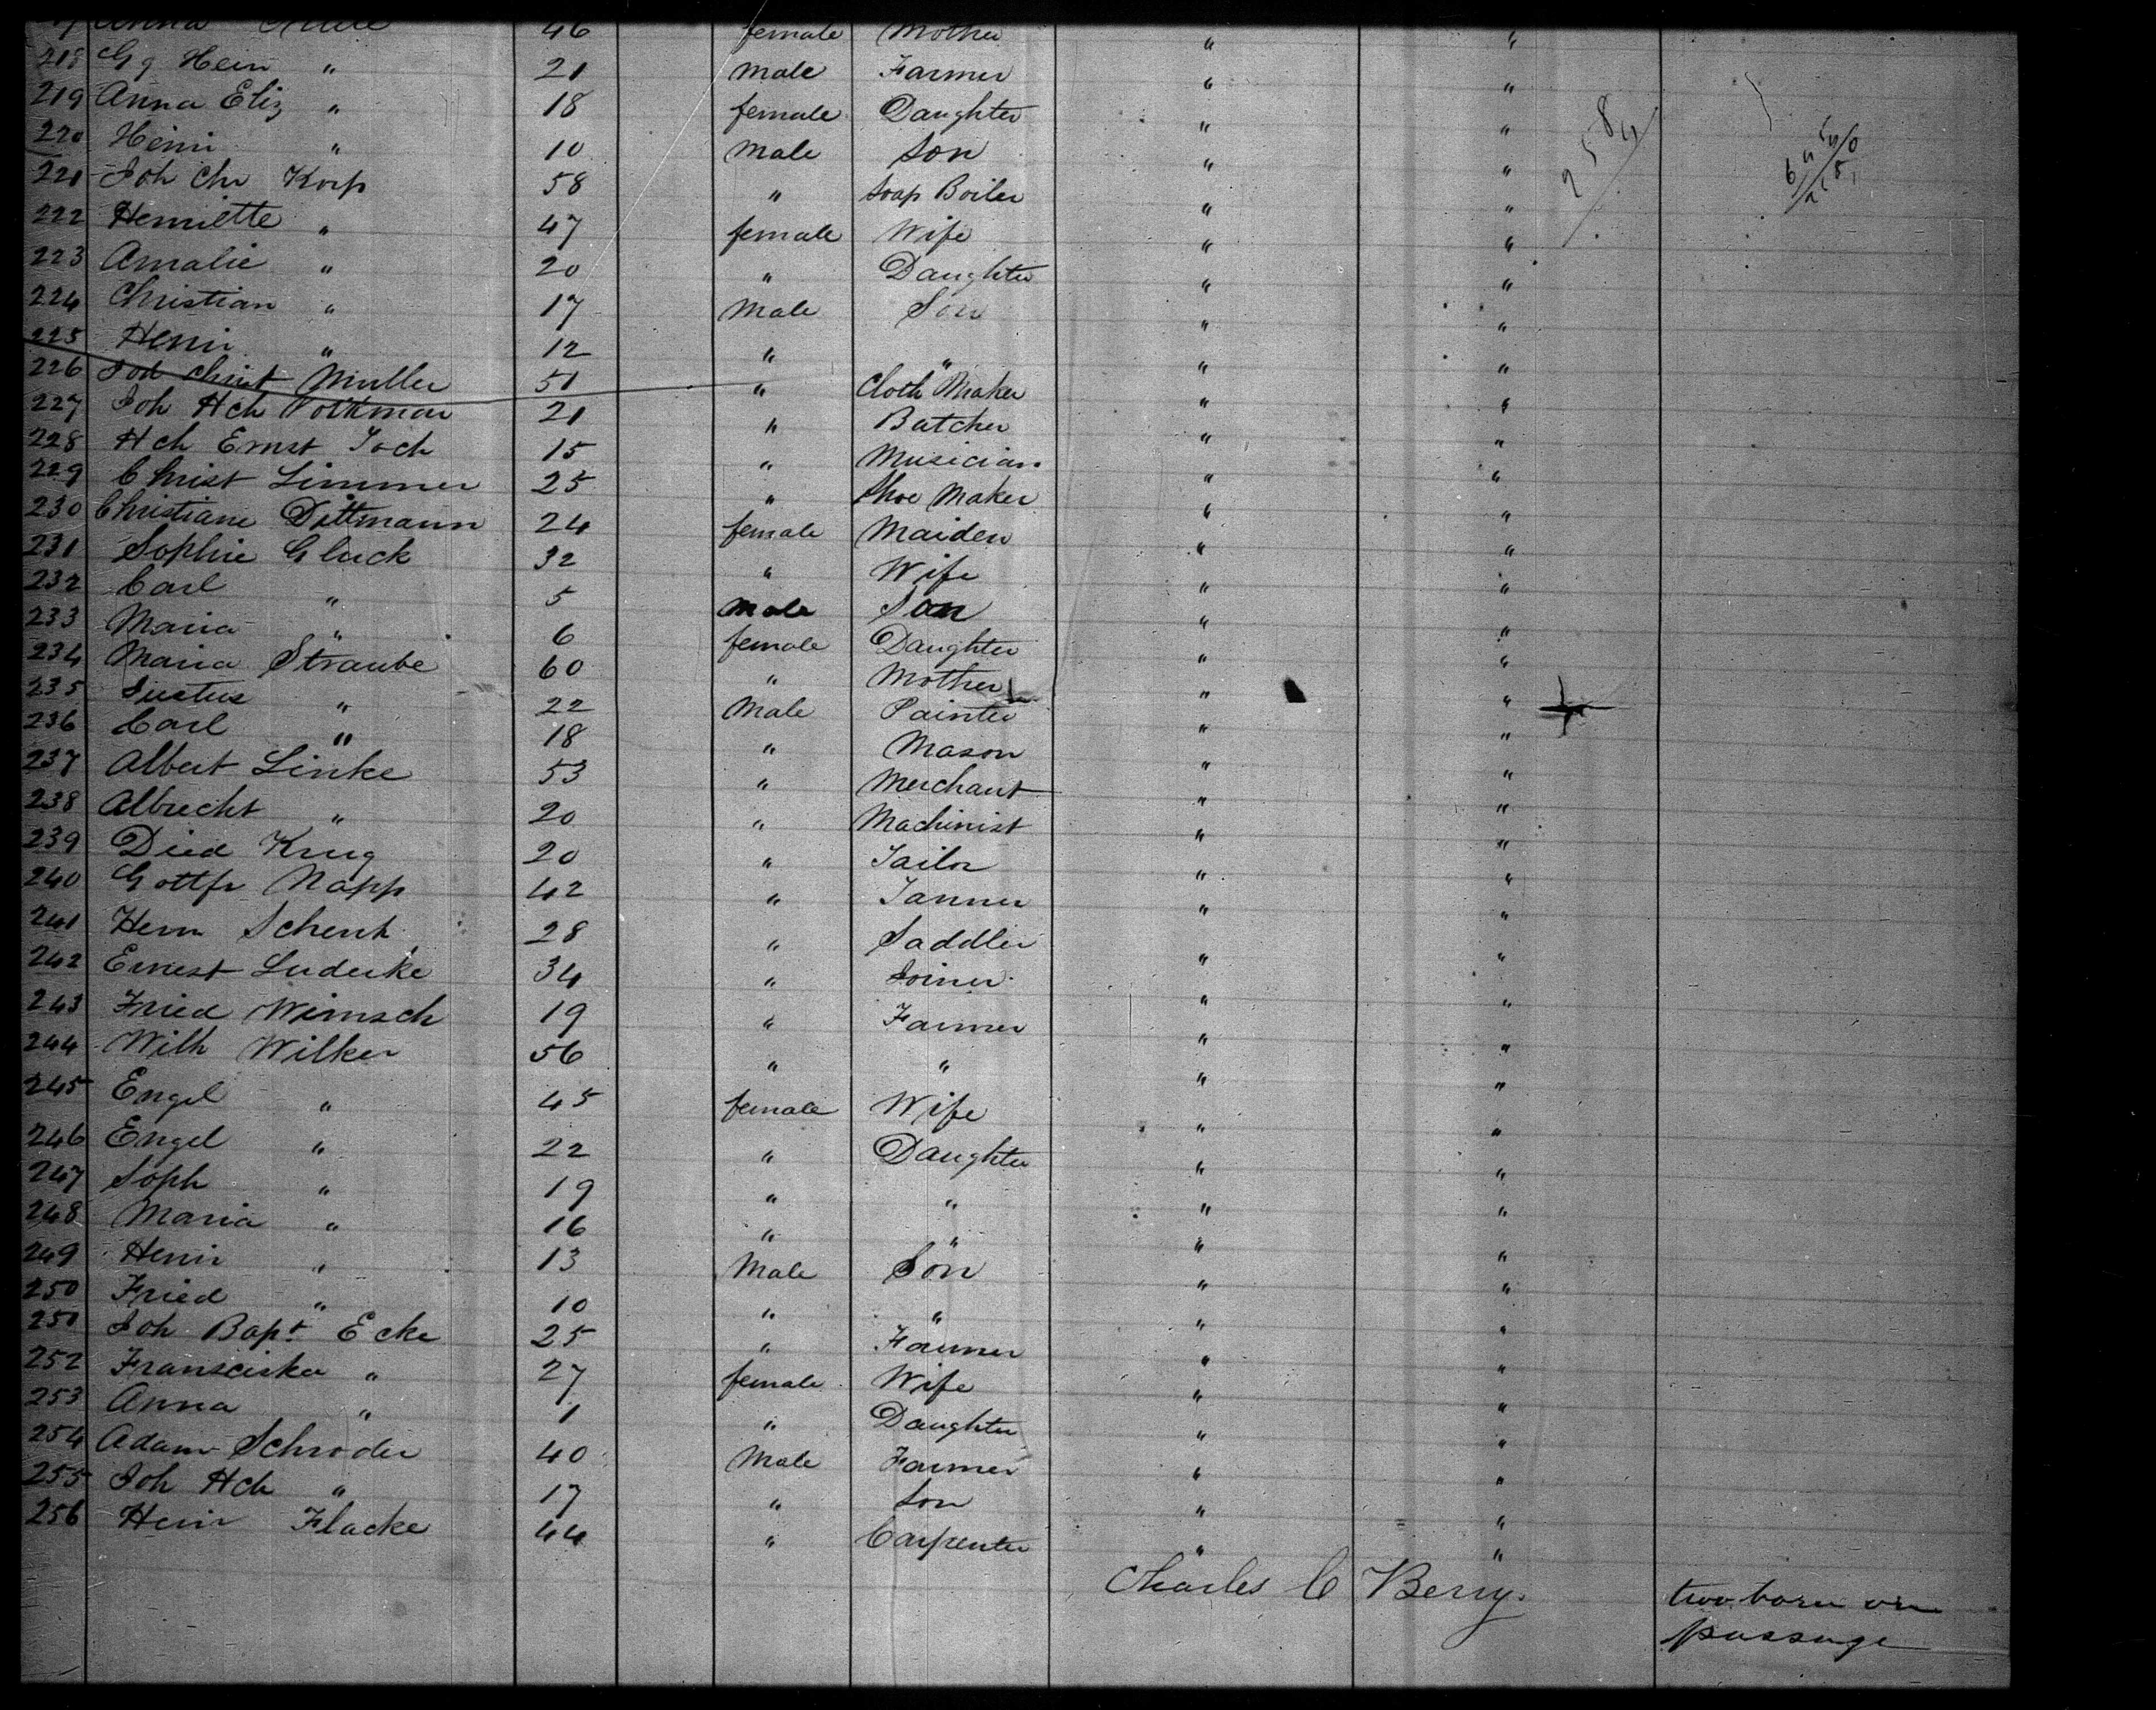 Anna 46 female Mother " "
218 Gg Hein " 21 Male Farmer " "
219 Anna Eliz " 18 female Daughter " "
220 Heinr " 10 Male Son " "
221 Joh Chr Korp 58 " Soap Boiler " "
222 Henriette " 47 female Wife " "
223 Amalie " 20 " Daughter " "
224 Christian " 17 Male Son " "
225 Heinr " 12 " " " "
226 Christ Muller 51 " Cloth Maker " "
227 Joh Hch Volkmar 21 " Butcher " "
228 Hch Ernst Joch 15 " Musician " "
229 Christ Limmer 25 " Shoe Maker " "
230 Christiane Dittmann 24 female Maiden " "
231 Sophie Gluck 32 " Wife " "
232 Carl " 5 Male Son " "
233 Maria " 6 female Daughter " "
234 Maria Straube 60 " Mother " "
235 Justus " 22 Male Painter " "
236 Carl " 18 " Mason " "
237 Albert Linke 53 " Merchant " "
238 Albrecht " 20 " Machinist " "
239 Died Krug 20 " Tailor " "
240 Gottfr Napp 42 " Tanner " "
241 Herm Schenk 28 " Saddler " "
242 Ernest Luderke 34 " Joiner " "
243 Fried Wimsch 19 " Farmer " "
244 Wilh Wilker 56 " " " "
245 Engel " 45 female Wife " "
246 Engel " 22 " Daughter " "
247 Soph " 19 " " " "
248 Maria " 16 " " " "
249 Heinr " 13 Male Son " "
250 Fried " 10 " " " "
251 Joh Bapt Ecke 25 " Farmer " "
252 Fransciska " 27 female Wife " "
253 Anna " 1 " Daughter " "
254 Adam Schroder 40 Male Farmer " "
255 Joh Hch " 17 " Son " "
256 Heinr Flacke 44 " Carpenter " "
Charles C Berry.
two born on
passage